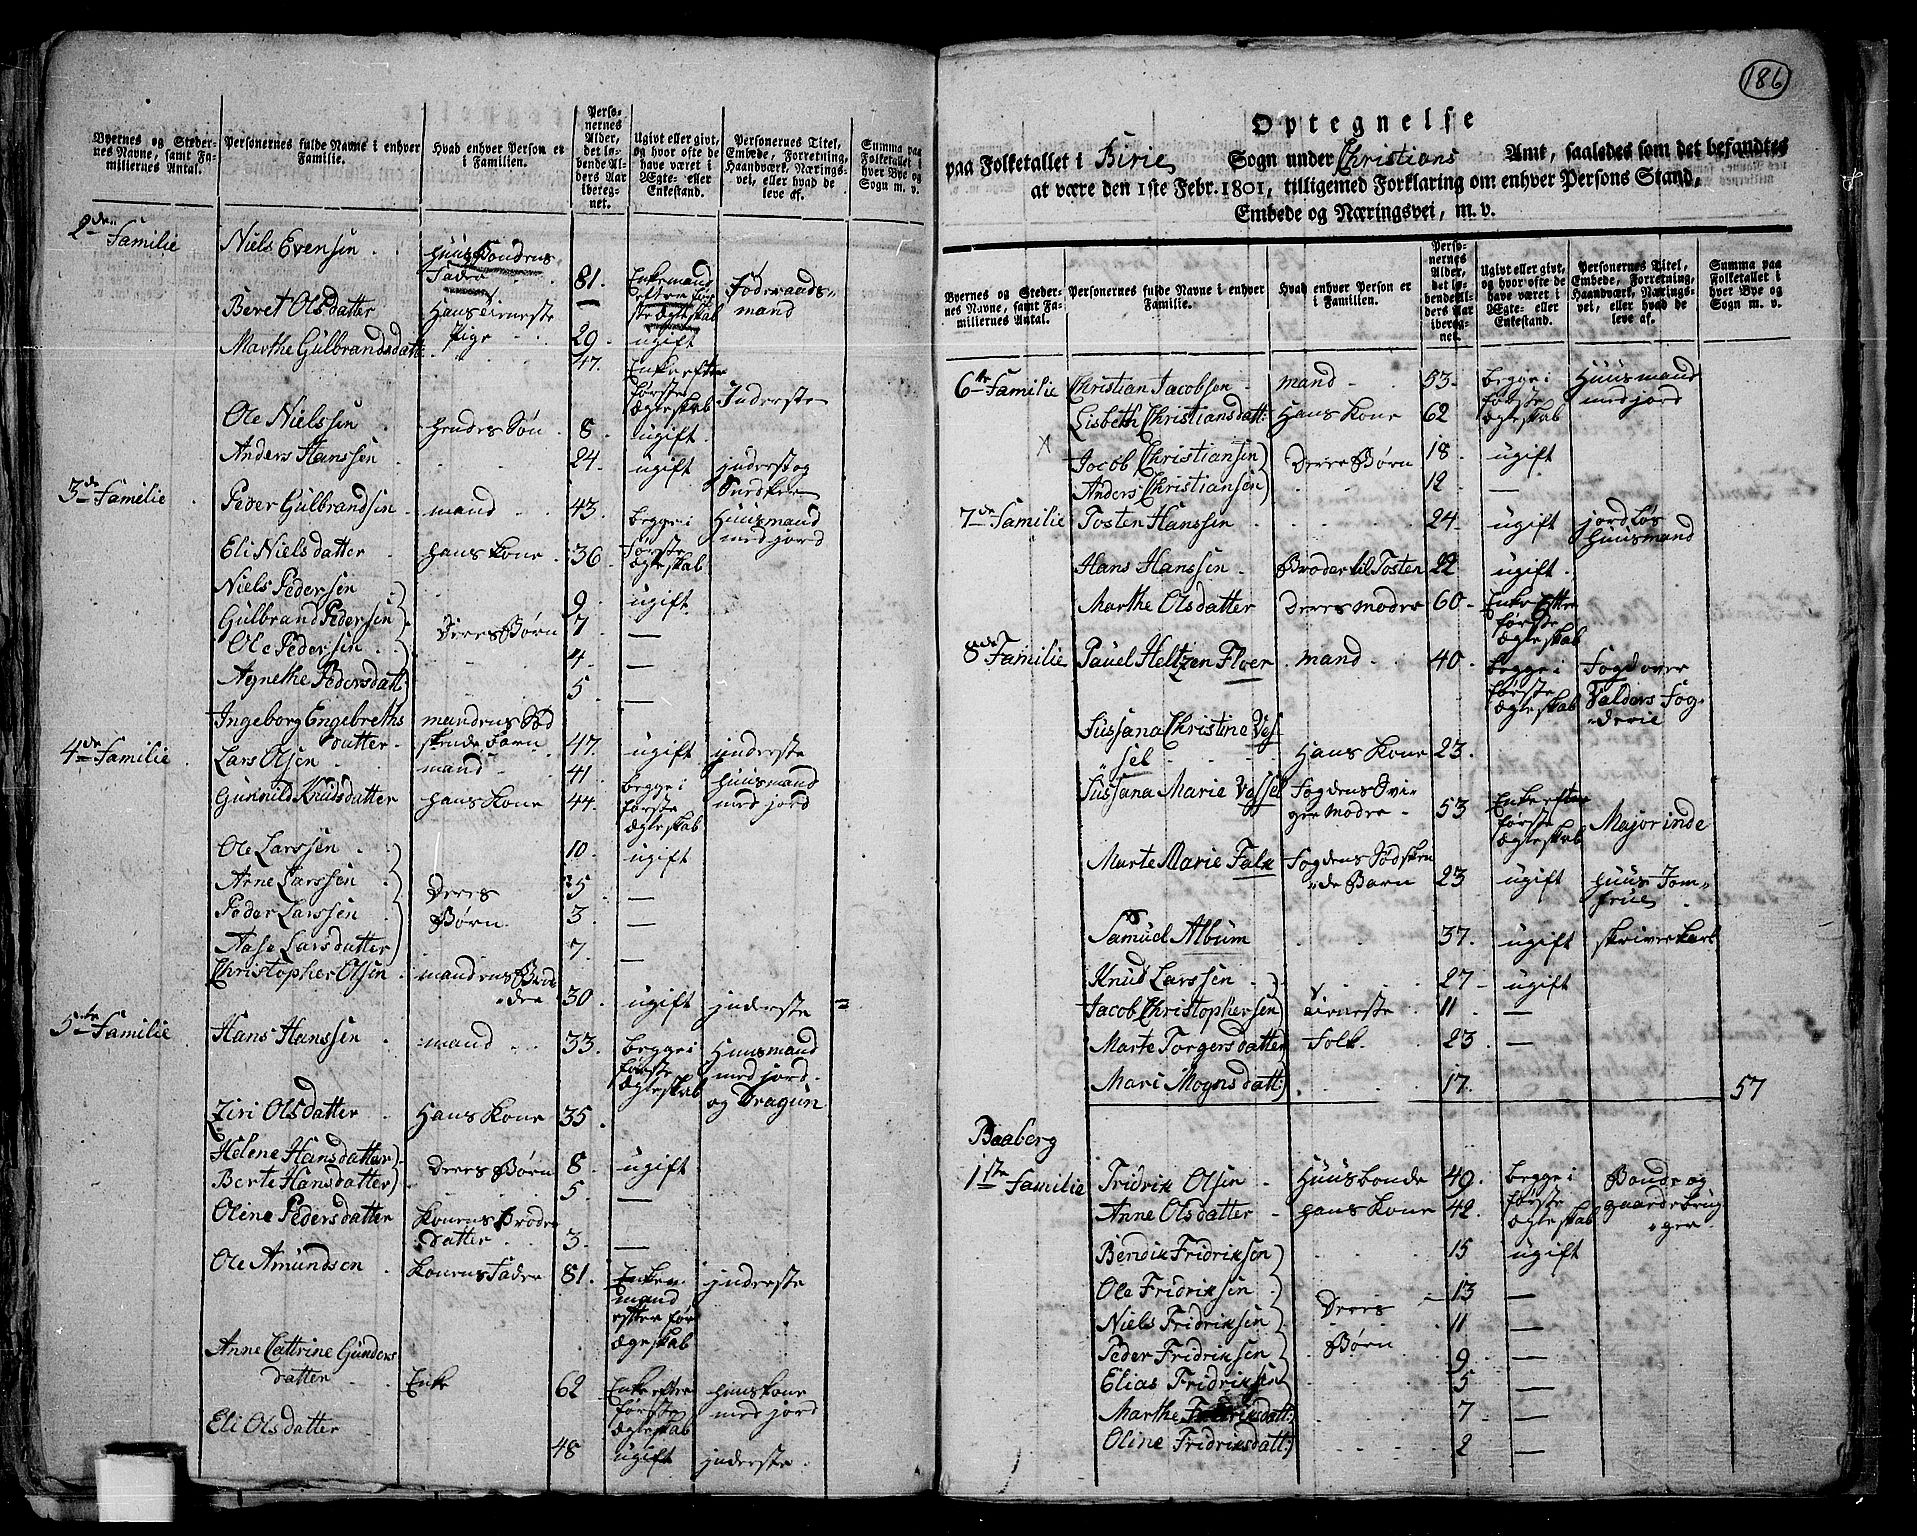 186
Byernes og Steder-
nes Navne, samt Fa-
milliernes Antal.
Personernes fulde Navne i enhver
Familie.
Hvad enhver Person er
i Familien.
Perso-
nernes
Alder,
det lø-
bende Al-
ders Aar
iberegn-
net.
Ugivt eller givt,
og hvor ofte de
have været i
Ægte- eller
Enkestand.
Personernes Titel,
Embede, Forretning,
Haandværk, Nærings-
vei, eller hvad de
leve af.
Summa paa
Folketallet i
hver Bye og
Sogn m. v.
2de Familie Niels Evensen Huusbondens
Fader 81. Enkemand Foderaads-
efter før- mand
ste ægteskab
Beret Olsdatter Hans tieneste
Pige 29. ugift
Marthe Gulbrandsdatt: 47. Enke efter
første
ægteskab Inderste
Ole Nielssen hendes Søn 8. ugift
Anders Hanssen 24. ugift inderst og
3de Familie Peder Gulbrandsen mand 43. begge i Huusmand
første med jord
ægteskab
Eli Nielsdatter hans Kone 36.
Niels Pedersen 9. ugift
Gulbrand Pedersen Deres Børn 7. —
Ole Pedersen 4. —
Agnethe Pedersdatt: 5. —
Ingeborg Engebreths mandens Sød
datter skende Barn 47. ugift inderste
4de Familie Lars Olsen mand 41. begge i Huusmand
Gunnild Knudsdatter hans Kone 44. første med jord
ægteskab
Ole Larssen 10. ugift
Arne Larssen Deres 5. —
Peder Larssen Børn 3. —
Aase Larsdatter 7. —
Christopher Olsen mandens Bro
der 30. ugift inderste
5te Familie Hans Hanssen mand 33. begge i Huusmand
første med jord
ægteskab og Dragun
Ziri Olsdatter Hans Kone 35.
Helene Hansdatter Deres Børn 8. ugift
Berte Hansdatter 5. —
Oline Pedersdatter Konens Broder
datter 3. —
Ole Amundsen Konens Fader 81. Enke inderste
mand
efter før
ægteskab
Anne Cattrine Gunders
datter Enke 62 Enke efter huuskone
første med jord
ægteskab
Eli Olsdatter 48 ugift inderste
Optegnelse
paa Folketallet i Birie Sogn under Christians Amt, saaledes som det befandtes
at være den 1ste Febr. 1801, tilligemed Forklaring om enhver Persons Stand,
Embede og Næringsvei, m. v.
Byernes og Steder-
nes Navne, samt Fa-
milliernes Antal.
Personernes fulde Navne i enhver
Familie.
Hvad enhver Person er
i Familien.
Perso-
nernes
Alder,
det lø-
bende Al-
ders Aar
iberegn-
net.
Ugivt eller givt,
og hvor ofte de
have været i
Ægte- eller
Enkestand.
Personernes Titel,
Embede, Forretning,
Haandværk, Nærings-
vei, eller hvad de
leve af.
Summa paa
Folketallet i
hver Bye og
Sogn m. v.
6te Familie Christian Jacobsen mand 53. begge i Huusmand
første med jord
ægteskab
Lisbeth Christiansdatt: Hans Kone 62
Jacob Christiansen Deres Børn 18. ugift
Anders Christiansen 12. —
7de Familie Tosten Hanssen 24. ugift jordløs
huusmand
Hans Hanssen Broder til Tosten 22 ugift
Marthe Olsdatter Deres moder 60. Enke efter
første
ægteskab
8de Familie Pauel Heltzen Floer mand 40. begge i Fogd over
første Valders Fog-
ægteskab derie
Sussana Christine Vos
sel Hans Kone 23.
Sussana Marie Vossel Fogdens Svi-
germoder 53 Enke efter
første Majorinde
ægteskab
Marte Marie Falk Fogdens Sødsken
de Barn 23 ugift huus Jom-
frue
Samuel Album 37. ugift skriverkarl
Knud Larssen 27. ugift
Jacob Christophersen tieneste 11. —
Marte Torgersdatter Folk 23. —
Mari Mognsdatt: 17. 57
Baaberg
1ste Familie Fridrik Olsen Huusbonde 49. begge i Bonde og
første gaardebrug
ægteskab ger
Anne Olsdatter hans Kone 42.
Bendik Fridriksen 15 ugift
Ole Fridriksen 13 —
Niels Fridriksen Deres 11 —
Peder Fridriksen Børn 9. —
Elias Fridriksen 5 —
Marthe Fridriksdatt: 7 —
Oline Fridriksdatt: 2 —